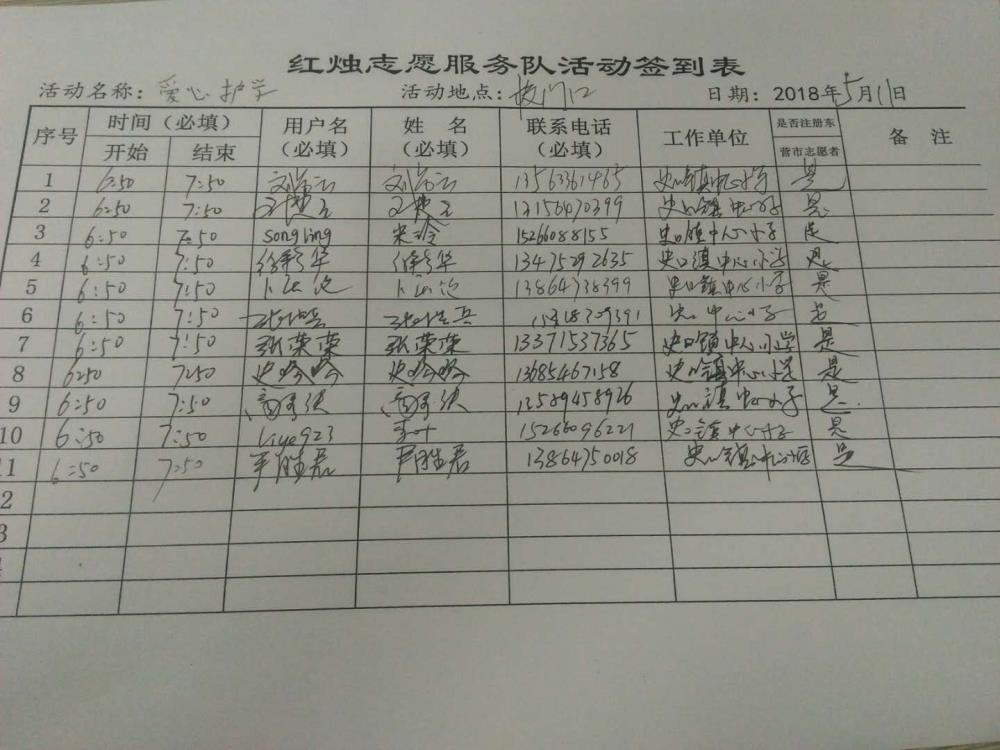 红烛志愿服务队活动签到表
活动名称：爱心护学 活动地点：校门口 日期：2018年5月11日
序号 时间（必填） 用户名（必填） 姓名（必填） 联系电话（必填） 工作单位 是否注册东营市志愿者 备注
开始 结束
1 6:50 7:50 13563361465 史口镇中心小学 是
2 6:50 7:50 13156470399 史口镇中心小学 是
3 6:50 7:50 songling 宋玲 15266088155 史口镇中心小学 是
4 6:50 7:50 徐秀华 徐秀华 13475292635 史口镇中心小学 是
5 6:50 7:50 13864738399 史口镇中心小学 是
6 6:50 7:50 史口中心小学
7 6:50 7:50 张荣荣 张荣荣 13371537365 史口镇中心小学 是
8 6:50 7:50 史哈哈 史哈哈 13685467158 史口镇中心小学 是
9 6:50 7:50 13589458926 史口镇中心小学 是
10 6:50 7:50 liye923 李叶 15266096221 史口镇中心小学 是
11 6:50 7:50 13864750018 史口镇中心小学 是
2
3